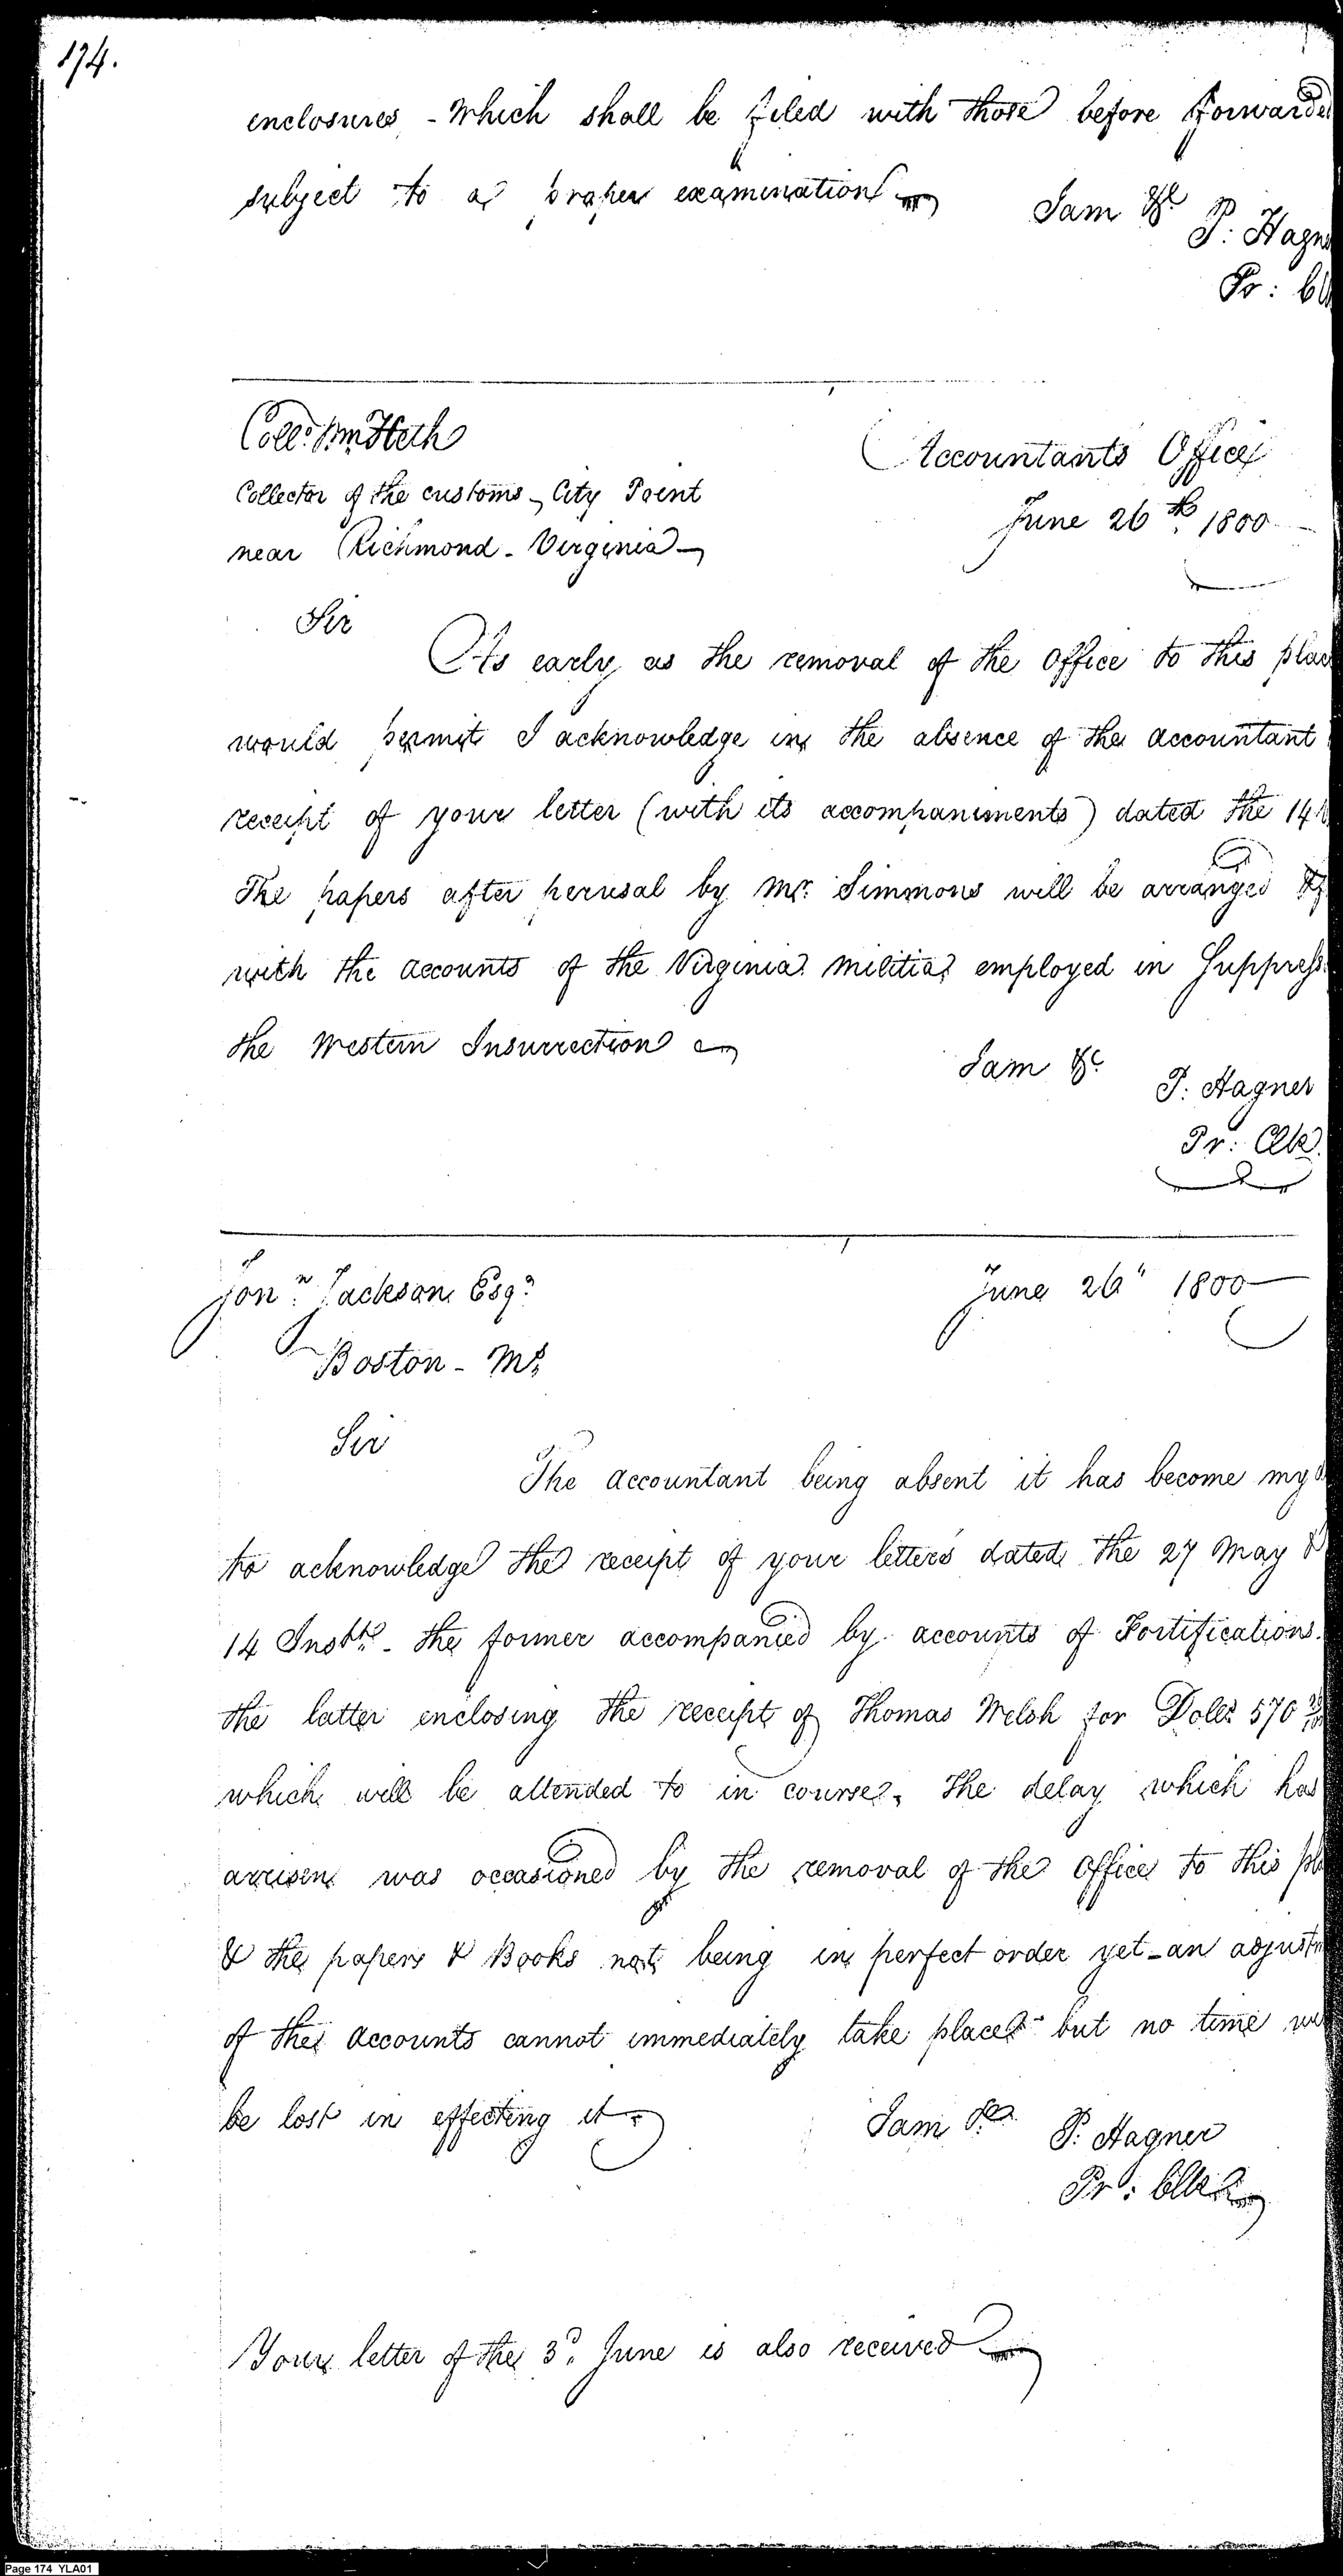 174.
enclosures - Which shall be filed with those before forwarded
subject to a proper examination
I am &c
P: Hagn
Pr: Cl
Coll. Wm. Heth
Collector of the customs - City Point
near Richmond - Virginia -
Accountants Office
June 26th 1800
Sir
As early as the removal of the office to this plac
would permit I acknowledge in the absence of the accountant
receipt of your letter (with its accompaniments) dated the 14
The papers after perusal by Mr. Simmons will be arranged
with the accounts of the Virginia militia employed in Suppress
the Western Insurrection
I am &c
P: Hagner
Pr: Clk.
Jonn. Jackson Esqr
Boston - Ms.
June 26" 1800
Sir
The accountant being absent it has become my
to acknowledge the receipt of your letters dated the 27 May &
14 Instt. the former accompanied by accounts of Fortifications.
the latter enclosing the receipt of Thomas Welsh for Dolls 570
which will be attended to in course. The delay which has
arrisen was occasioned by the removal of the office to this pla
& the papers & Books not being in perfect order yet - an adjustm
of the accounts cannot immediately take place - but no time wi
be lost in effecting it.
I am &c
P: Hagner
Pr: Clk
Your letter of the 3d. June is also received
Page 174 YLA01